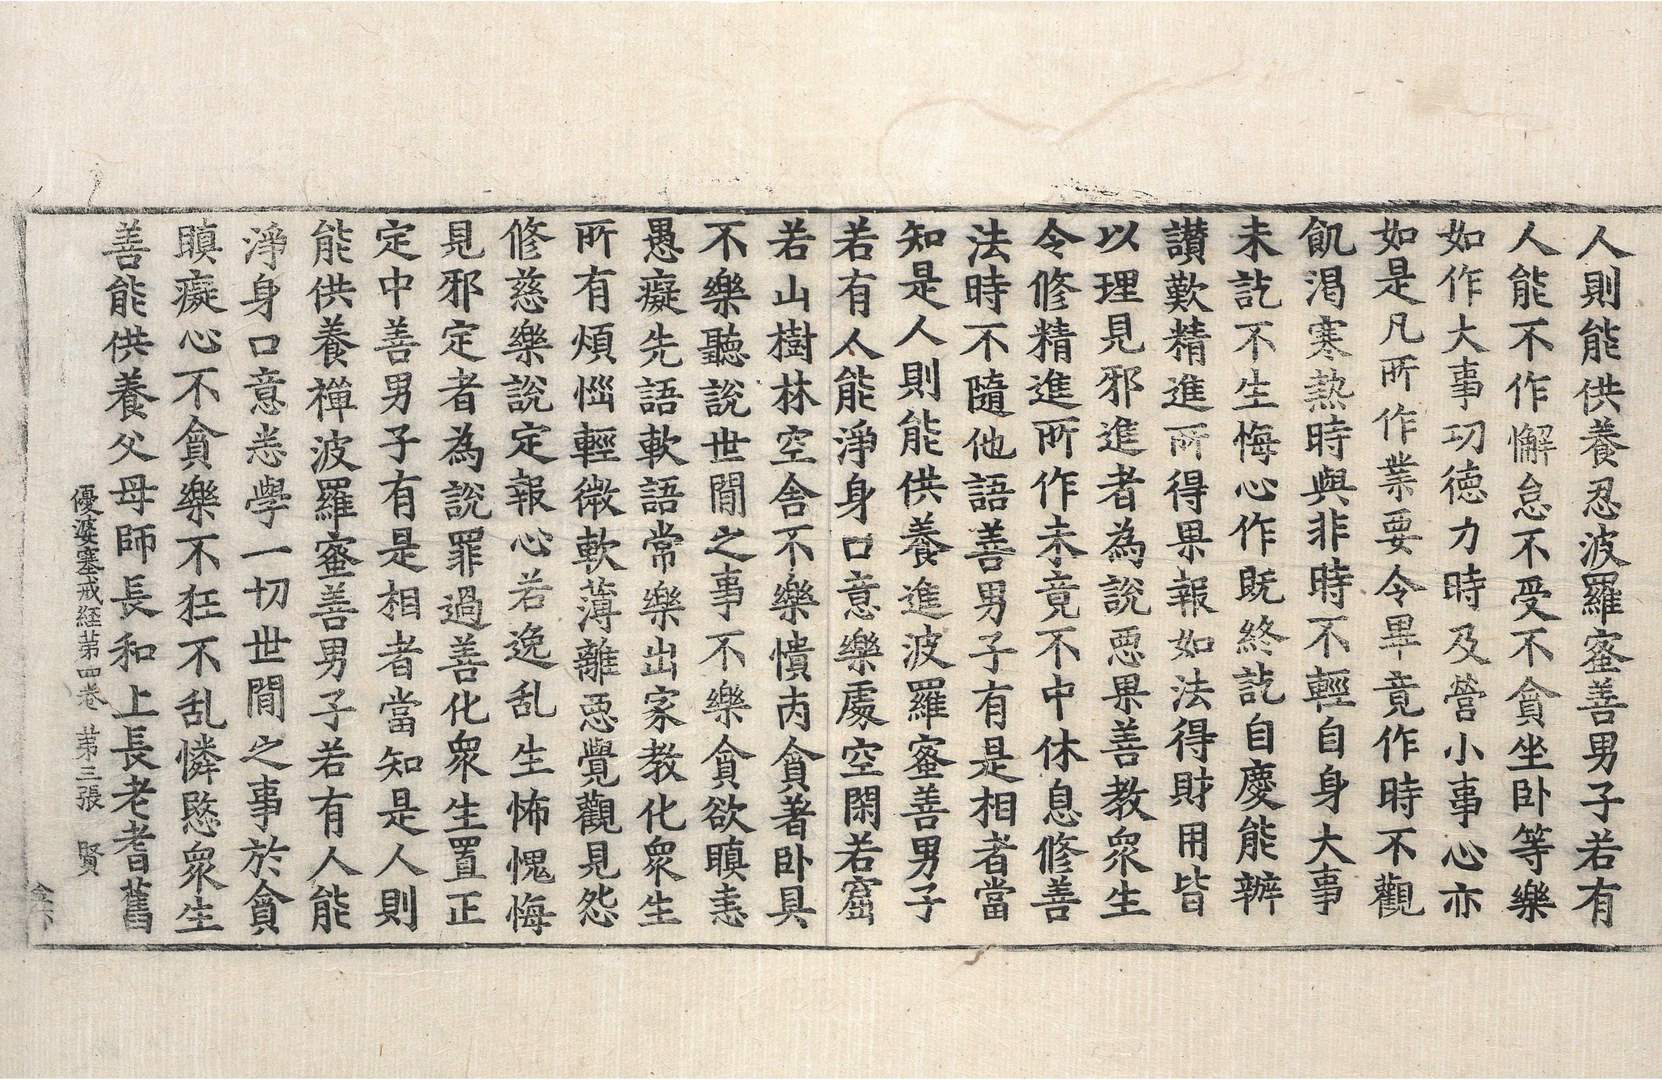 人則能供養忍波羅蜜善男子若有
人能不作懈怠不受不貪坐卧等樂
如作大事功徳力時及營小事心亦
如是凡所作業要令畢竟作時不觀
飢渇寒熱時與非時不輕自身大事
未訖不生悔心作既終訖自慶能辨
讃歎精進所得果報如法得財用皆
以理見邪進者為說惡果善教衆生
令修精進所作未竟不中休息修善
法時不隨他語善男子有是相者當
知是人則能供養進波羅蜜善男子
若有人能淨身口意樂處空閑若窟
若山樹林空舍不樂憒丙貪著卧具
不樂聽說世間之事不樂貪欲瞋恚
愚癡先語軟語常樂出家教化衆生
所有煩惱輕微軟薄離惡覺觀見怨
修慈樂說定報心若逸乱生怖愧悔
見邪定者為說罪過善化衆生置正
定中善男子有是相者當知是人則
能供養禪波羅蜜善男子若有人能
淨身口意悉學一切世間之事於貪
瞋癡心不貪樂不狂不乱憐愍衆生
善能供養父母師長和上長老耆舊
優婆塞戒経苐四卷 苐三張 賢